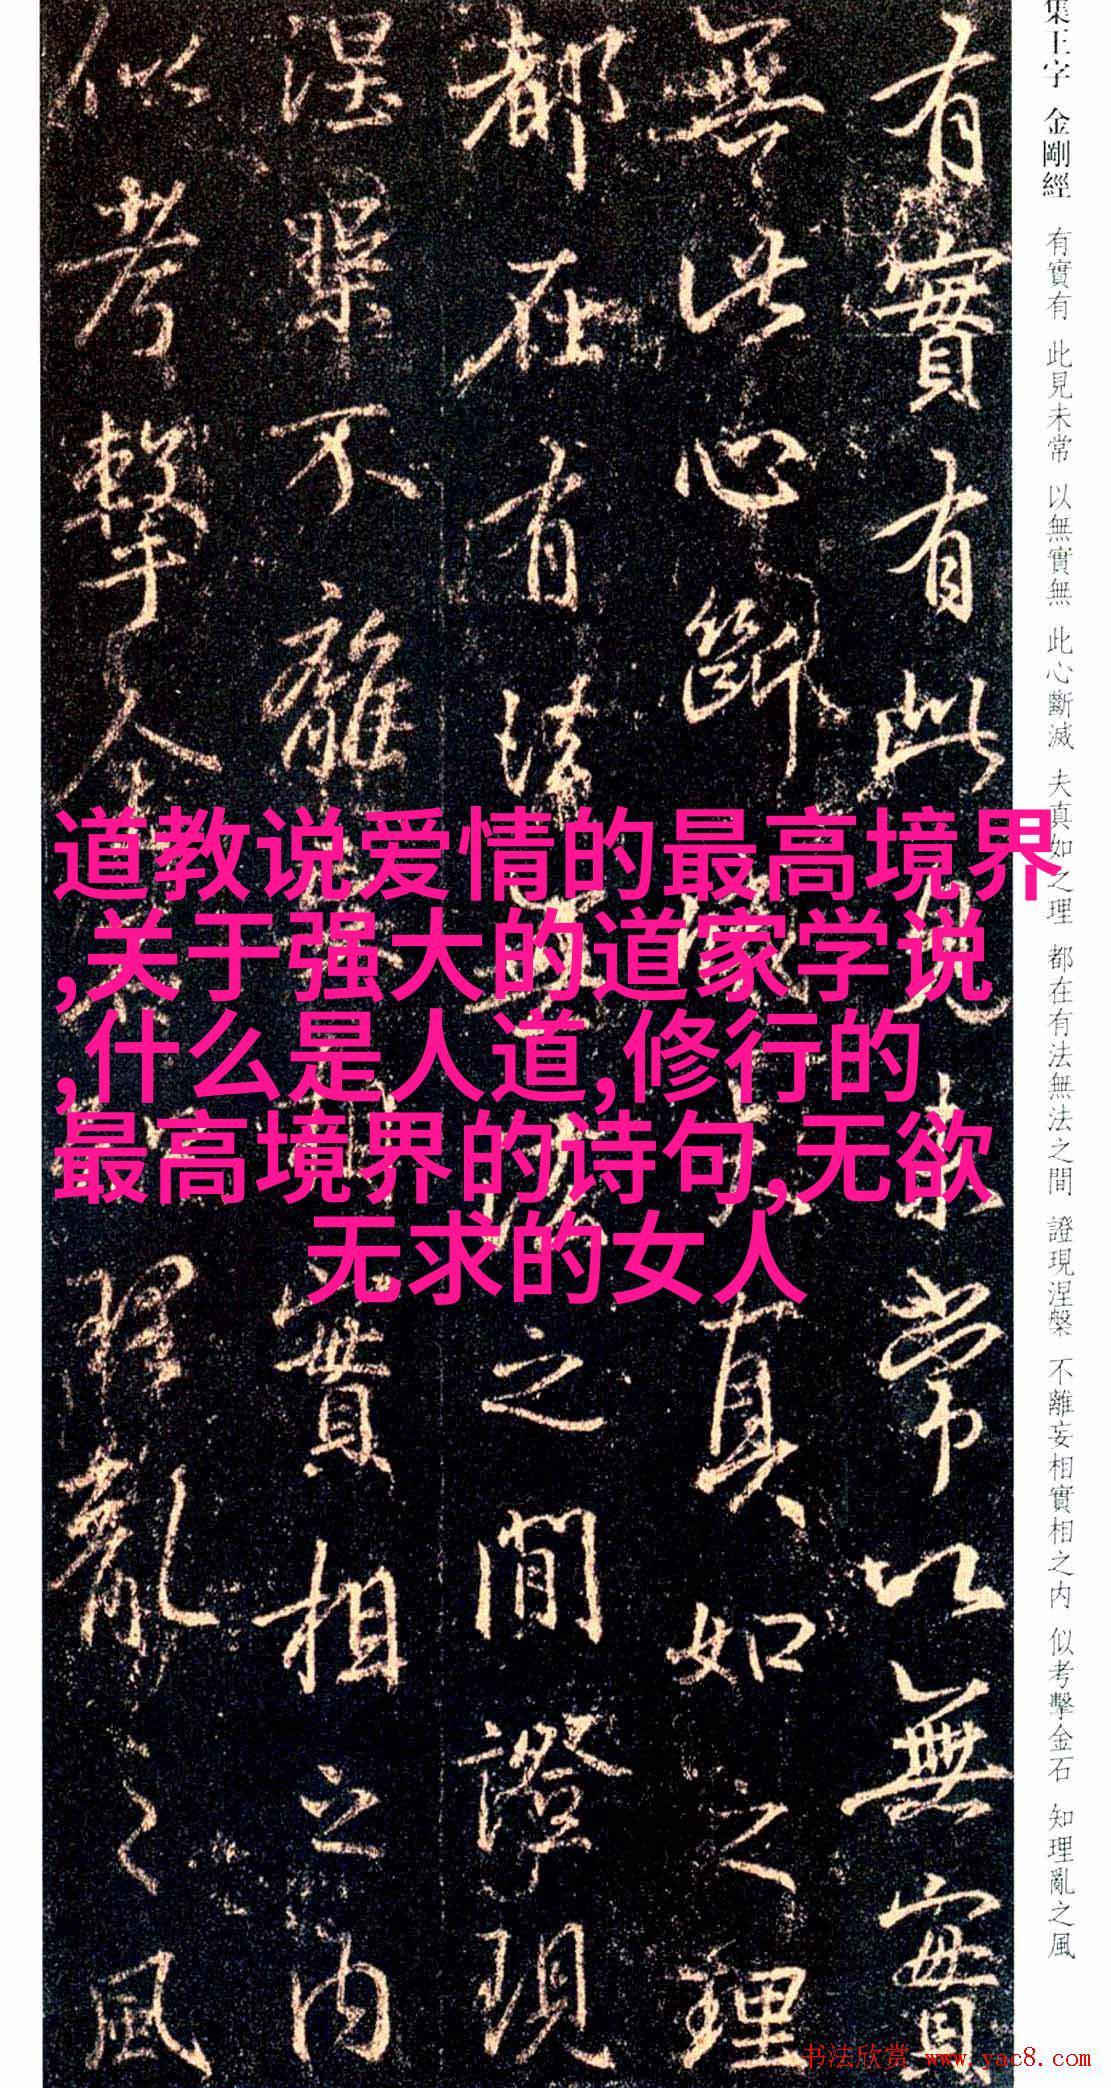 集王字 金剛經 有實有 此見未常 以無實無 此心斷滅 夫真如之理 都在有法無法之間 證現涅槃 不離妄相實相之内 似考擊金石 知理亂之風
有實有此見未常以無實
無此心斷滅夫真如之理
都在有法無法之間證現
涅槃不離妄相實相之内
似考擊金石知理亂之風
道教说爱情的最高境界
,关于强大的道家学说
,什么是人道,修行的
最高境界的诗句,无欲
无求的女人
书法欣赏 www.yac8.com